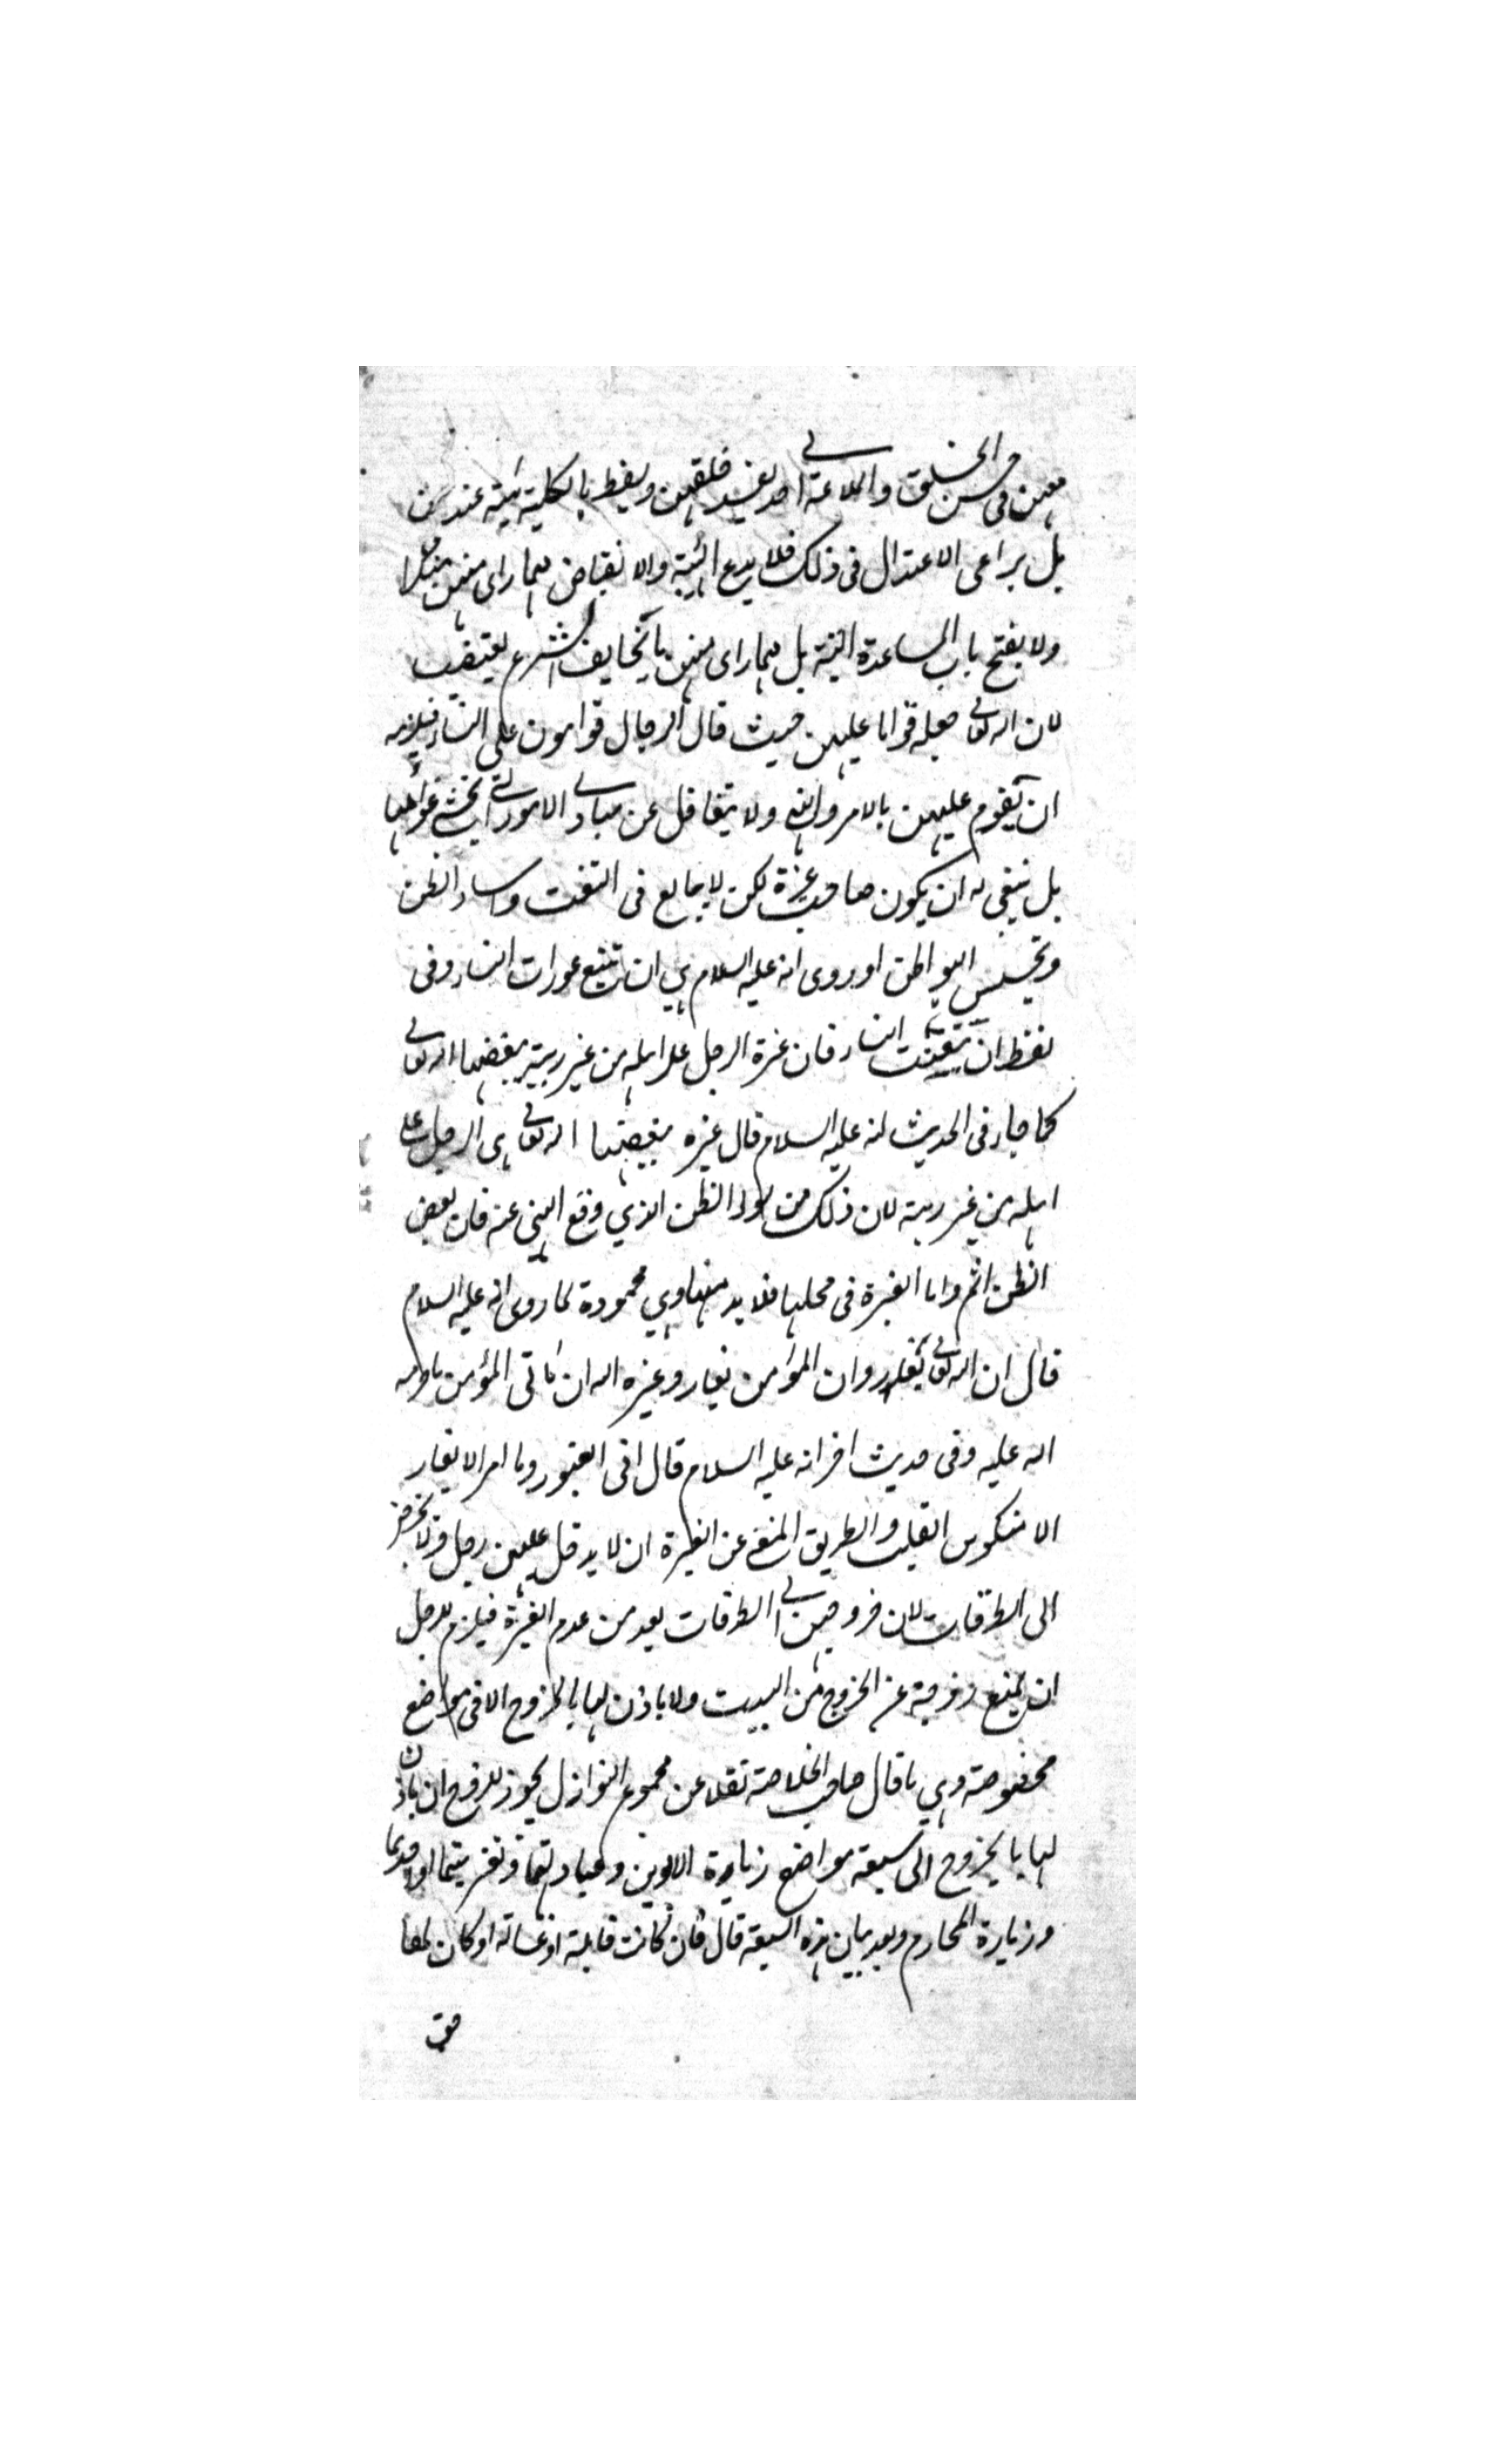 معهن فى حسن الخلق والملاعبة الى حد يفسد خلقهن ويسقط بالكلية هيبته عندهن
بل يراعى الاعتدال فى ذلك فلا يدع الهيبة والانقباض مهما راى منهن منكرا
ولا يفتح باب المساعدة البتة بل مهما راى منهن ما يخالف الشرع يغتضب
لان الله تعالى جعله قواما عليهن حيث قال الرجال قوامون على النساء فيلزمه
ان يقوم عليهن بالامر والنهى ولا يتغافل عن مبادى الامور التى تخشى غوائلها
بل ينبغى له ان يكون صاحب غيرة لكن لا يبالع فى التعنت واساءة الظن
وتجسس البواطن اذ روى انه عليه السلام نهى ان تتبع عورات النساء وفى
لفظ ان تتعنت النساء فان غيرة الرجل على اهله من غير ريبة يبغضها الله تعالى
كما جاء فى الحديث انه عليه السلام قال غيرة يبغضها الله تعالى هى الرجل على
اهله من غير ريبة لان ذلك من سوء الظن الذي وقع النهى عنه فان بعض
الظن اثم واما الغيرة فى محلها فلا بد منها وهي محمودة لما روى انه عليه السلام
قال ان الله تعالى يغار وان المؤمن يغار وغيرة الله ان ياتى المؤمن ما حرمه
الله عليه وفى حديث اخر انه عليه السلام قال انى لغيور وما امرء لا يغار
الا منكوس القلب والطريق المغنى عن الغيرة ان لا يدخل عليهن رجل ولا يخرجن
الى الطرقات لان خروجهن الى الطرقات يعد من عدم الغيرة فيلزم للرجل
ان يمنع زوجته عن الخروج من البيت ولا ياذن لها بالخروج الا فى مواضع
مخصوصة وهي ما قال صاحب الخلاصة نقلا عن مجموع النوازل يجوز للزوج ان ياذن
لها بالخروج الى سبعة مواضع زيارة الابوين وعيادتهما وتعزيتهما او احدهما
وزيارة المحارم وبعد بيان هذه السبعة قال فان كانت قابلة او غسالة او كان لها
حق